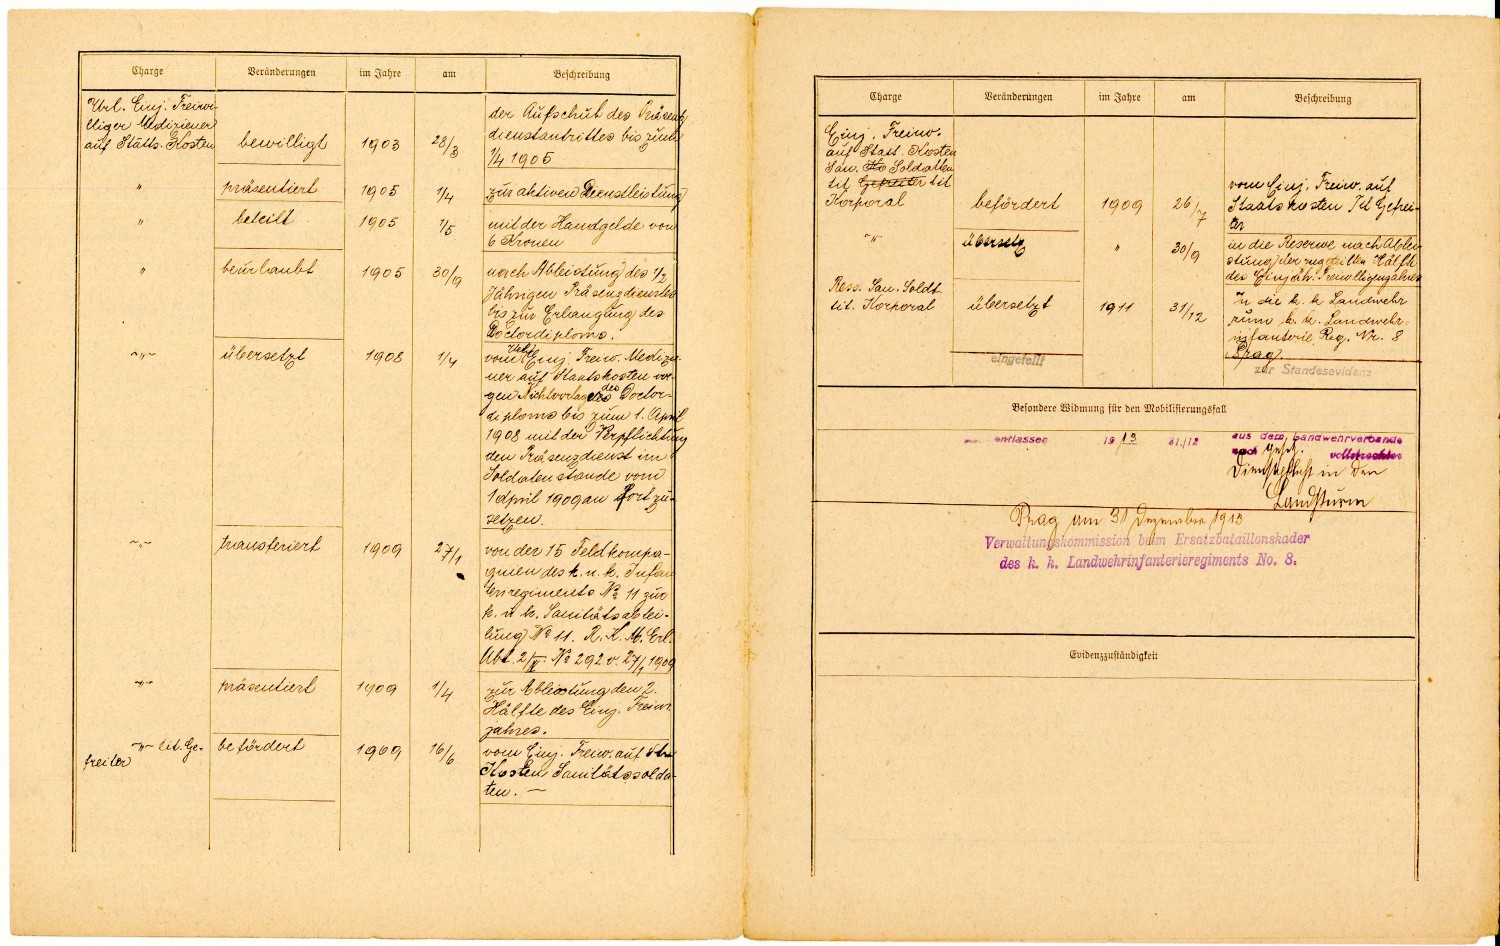 Charge Veränderungen im Jahre am Beschreibung
Url. Einj. Freiwi-
lliger Mediziener
auf Stätts. Kosten bewilligt 1903 28/3
der Aufschut des Präsenz
dienstantrittes bis zum
1/4 1905
" präsentiert 1905 1/4 zur aktiven Dienstleistung
" beteilt 1905 1/5 mit der Handgelde von
6 Kronen
" beurlaubt 1905 30/9 nach Ableistung des 1/2
Jährigen Präsenzdienstes
bis zur Erlangung des
Doctordiploms.
~"~ übersetzt 1908 1/4 vom Einj. Freiw. Medizi-
ner auf Staatskosten we-
gen Nichtvorlage des Doctor-
diploms bis zum 1. April
1908 mit der Verpflichtung
den Präsenzdienst im
Soldatenstande vom
1 april 1909 an Fort zu-
setzen.
~"~ transferiert 1909 27/1 von der 15 Feldkompa-
gnien des k. u. k. Infan
teriregiments No 11 zur
k. u k. Sanitätsabtei-
lung No 11. R. K. M. Erl.
Abt. 2/ No 292 v. 27/1 1909
~"~ präsentiert 1909 1/4 zur Ableistung den 2.
Hälfte des Einj. Freiw.
jahres.
~"~ tit. Ge-
freiter befördert 1909 16/6 vom Einj. Freiw. auf
Kosten Sanitätssolda-
ten. —
Charge Veränderungen im Jahre am Beschreibung
Einj. Freiw.
auf Statt. Kosten
San. Soldatten
tit Gefreiter tit
Korporal befördert 1909 26/7
vom Einj. Freiw. auf
Staatskosten Tit Gefrei-
ter
~"~ übersetz " 30/9 in die Reserve nach Ablei-
stung der zugeteilten Hälfte
des Einjäh. Freiwilligenjahres
Ress. San. Soldt.
tit. Korporal übersetzt 1911 31/12 in die k. k Landwehr
zum k. k. Landwehr-
infanterie Reg. Nr. 8
Prag.
eingeteilt zur Standesevidenz
Besondere Widmung für den Mobilisierungsfall
entlassen 1913 31./12 aus dem Landwehrverbande
nach gesetz. vollstreckter
Dienstpflicht in den
Landsturm
Prag am 31 Dezember 1913
Verwaltungskommission beim Ersatzbataillonskader
des k. k. Landwehrinfanterieregiments No. 8.
Evidenzzuständigkeit